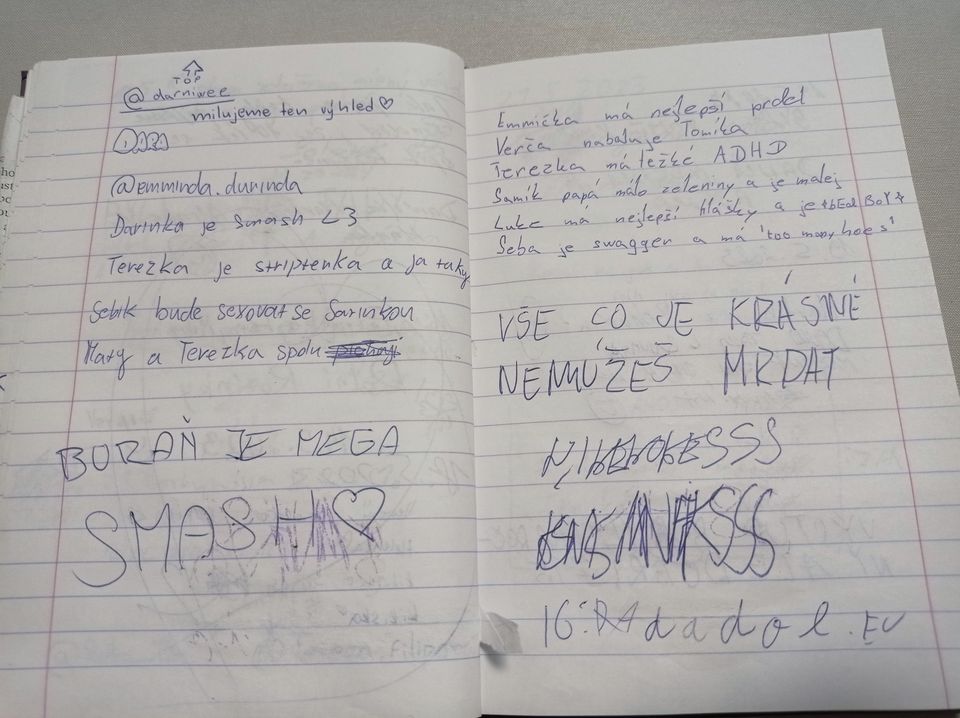 TOP
@darniwee
milujeme ten výhled♡
@emminda.durinda
Darinka je smash <3
Terezka je striptenka a ja taky
Sebik bude sexovat se Sarinkou
Maty a Terezka spolu
BORAŇ JE MEGA
SMASH♡
Emmička má nejlepší prdel
Verča nabaluje Tomíka
Terezka má těžké ADHD
Samík papá málo zeleniny a je malej
Luke má nejlepší hlášky a je
Seba je swagger a má 'too many hoes'
VŠE CO JE KRÁSNÉ
NEMŮŽEŠ MRDAT
IG: